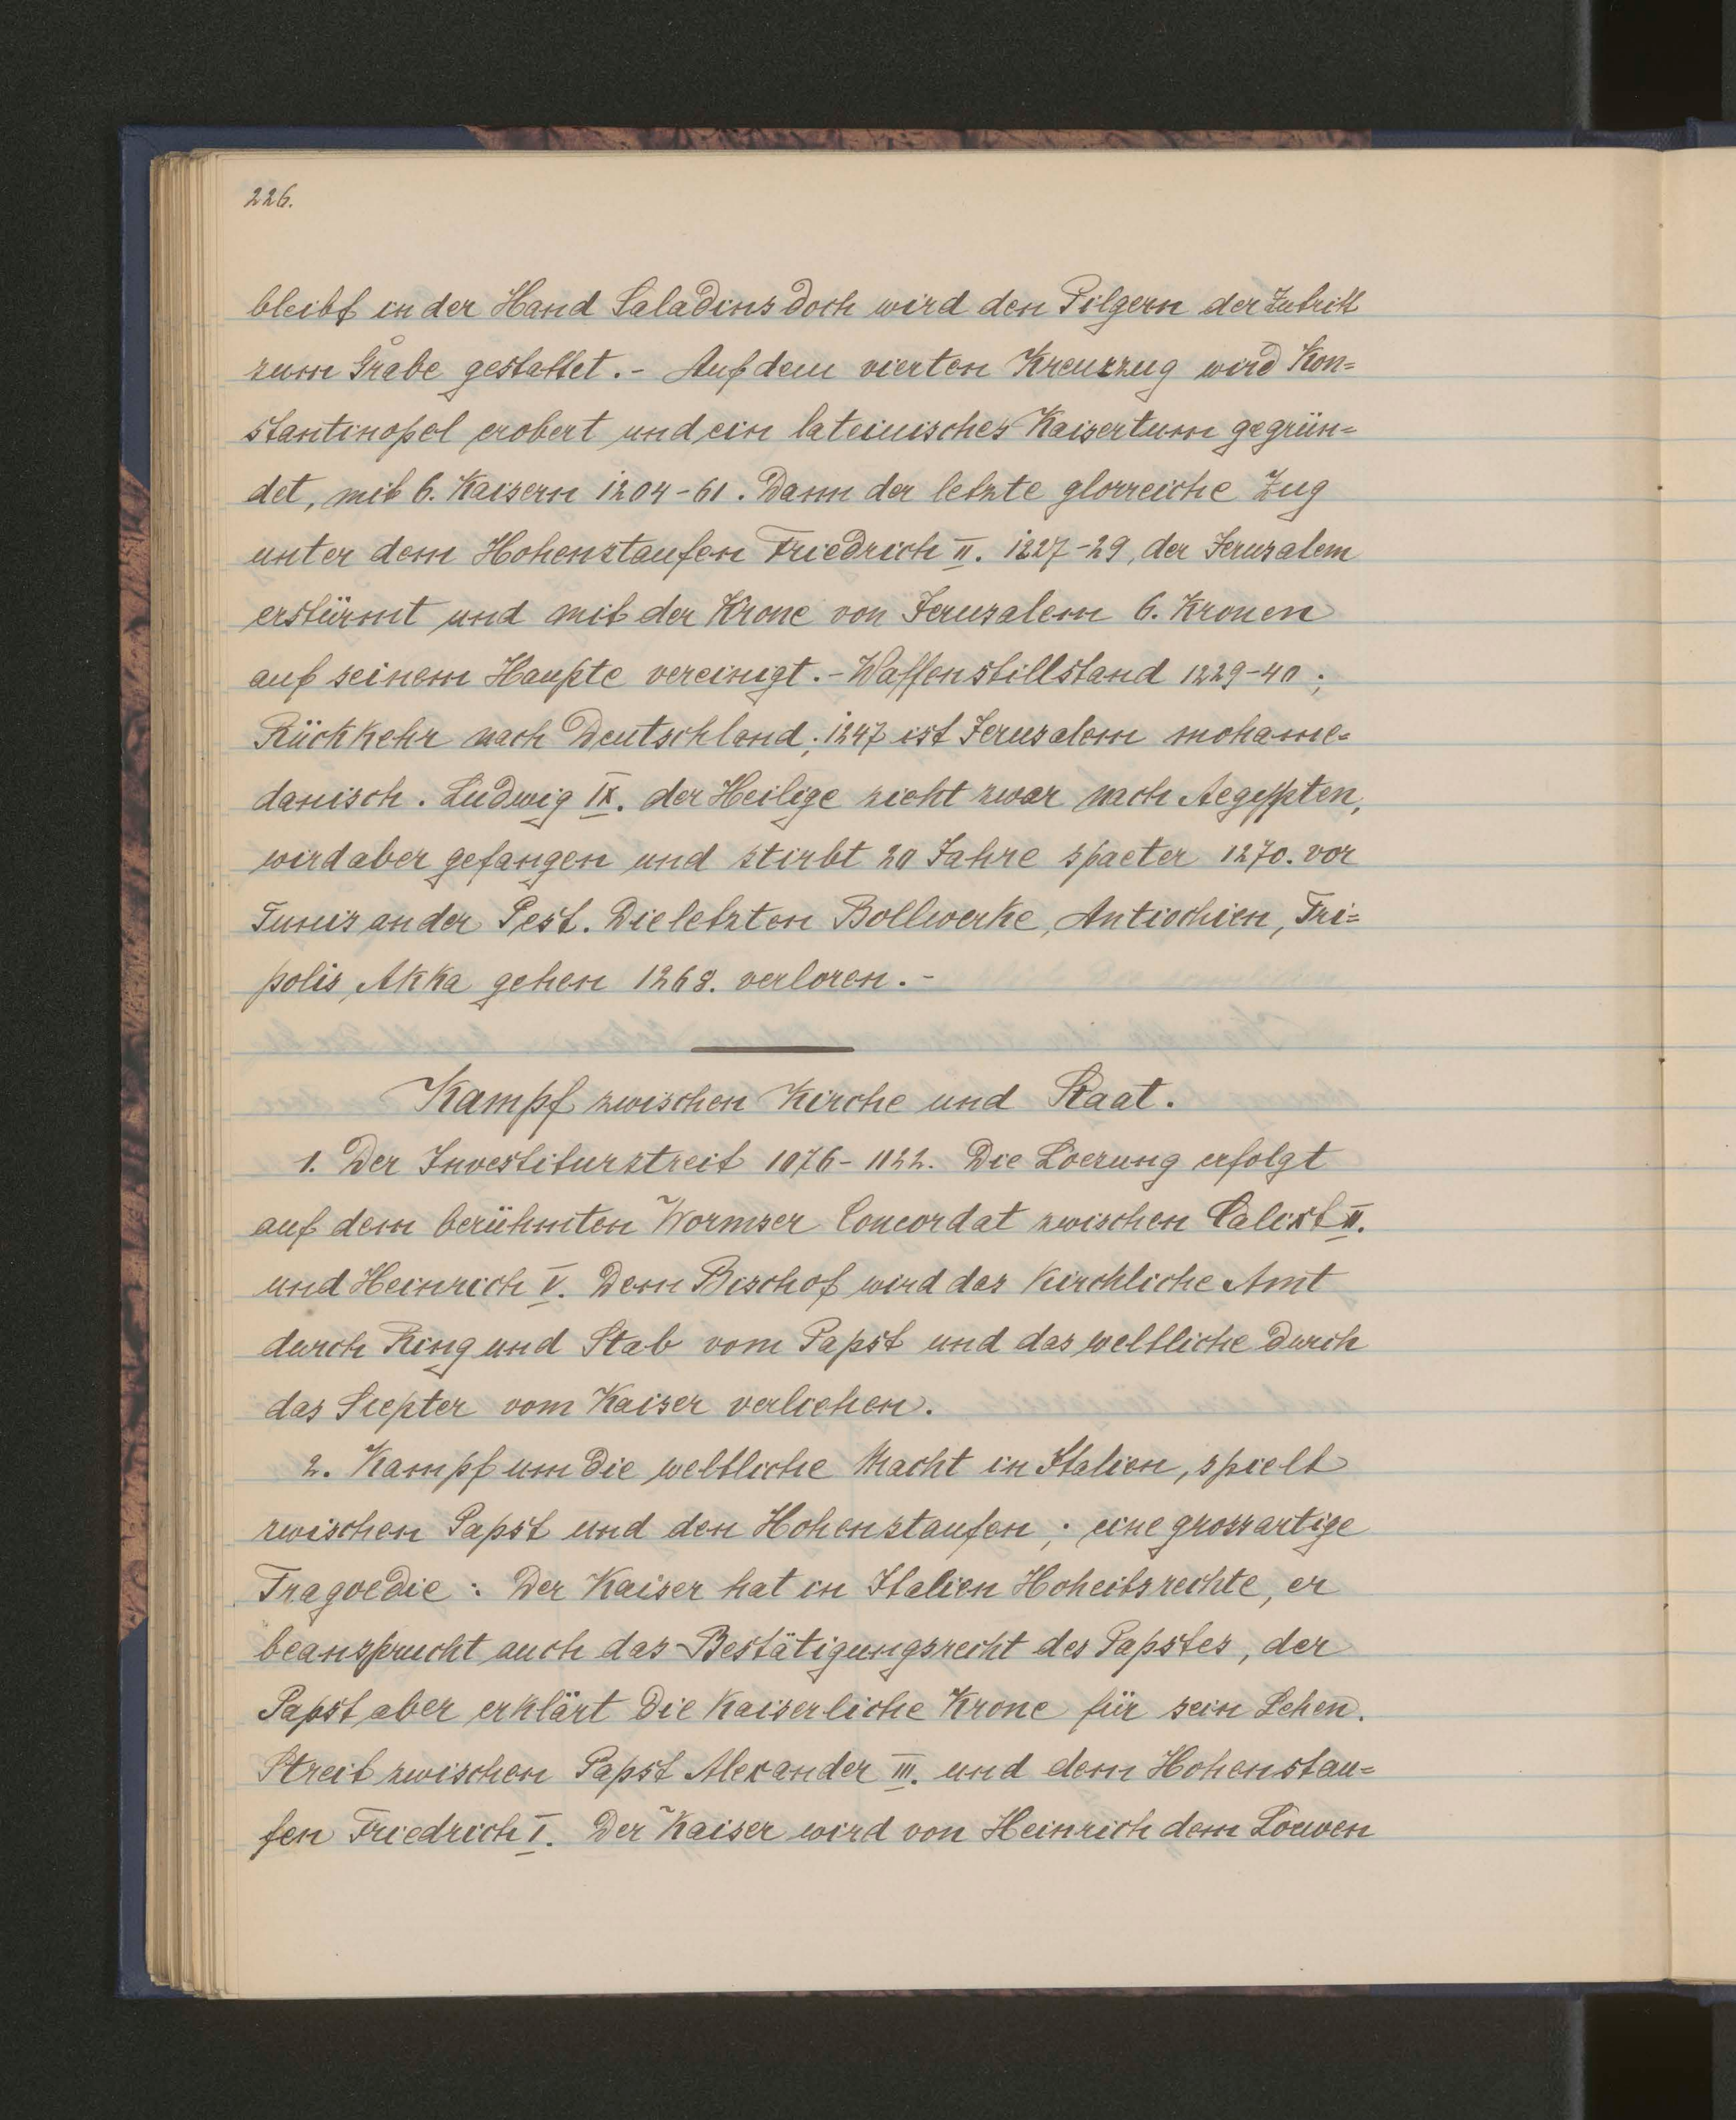 226.
bleibt in der Hand Saladins doch wird den Pilgern der Zutritt
zum Grabe gestattet.- Auf dem vierten Kreuzzug wird Kon=
stantinopel erobert und ein lateinisches Kaisertum gegrün=
det, mit 6. Kaisern 1204-61. Dann der letzte glorreiche Zug
unter dem Hohenstaufen Friedrich II. 1227-29, der Jerusalem
erstürmt und mit der Krone von Jerusalem 6. Kronen
auf seinem Haupte vereinigt.- Waffenstillstand 1229-40;
Rückkehr nach Deutschland; 1247 ist Jerusalem mohame=
danisch. Ludwig IX. der Heilige zieht zwar nach Aegypten,
wird aber gefangen und stirbt 20 Jahre spaeter 1270. vor
Tunis an der Pest. Die letzten Bollwerke, Antiochien, Tri=
polis, Akka gehen 1268. verloren.-
Kampf zwischen Kirche und Staat.
1. Der Investiturstreit 1076-1122. Die Loesung erfolgt
auf dem berühmten Wormser Concordat zwischen Calixt II.
und Heinrich V. Dem Bischof wird das Kirchliche Amt
durch Ring und Stab vom Papst und das weltliche durch
das Scepter vom Kaiser verliehen.
2. Kampf um die weltliche Macht in Italien, spielt
zwischen Papst und den Hohenstaufen; eine grossartige
Tragoedie: Der Kaiser hat in Italien Hoheitsrechte, er
beansprucht auch das Bestätigungsrecht des Papstes, der
Papst aber erklärt die Kaiserliche Krone für sein Lehen.
Streit zwischen Papst Alexander III. und dem Hohenstau=
fen Friedrich I. Der Kaiser wird von Heinrich dem Loewen